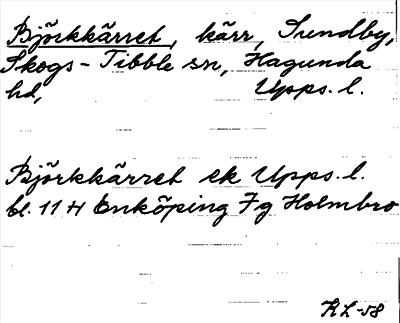 Björkkärret, kärr, Sundby,
Skogs-Tibble sn, Hagunda
hd, Upps. l.
Björkkärret ek Upps. l.
bl. 11 H Enköping Fg Holmbro
KL-58